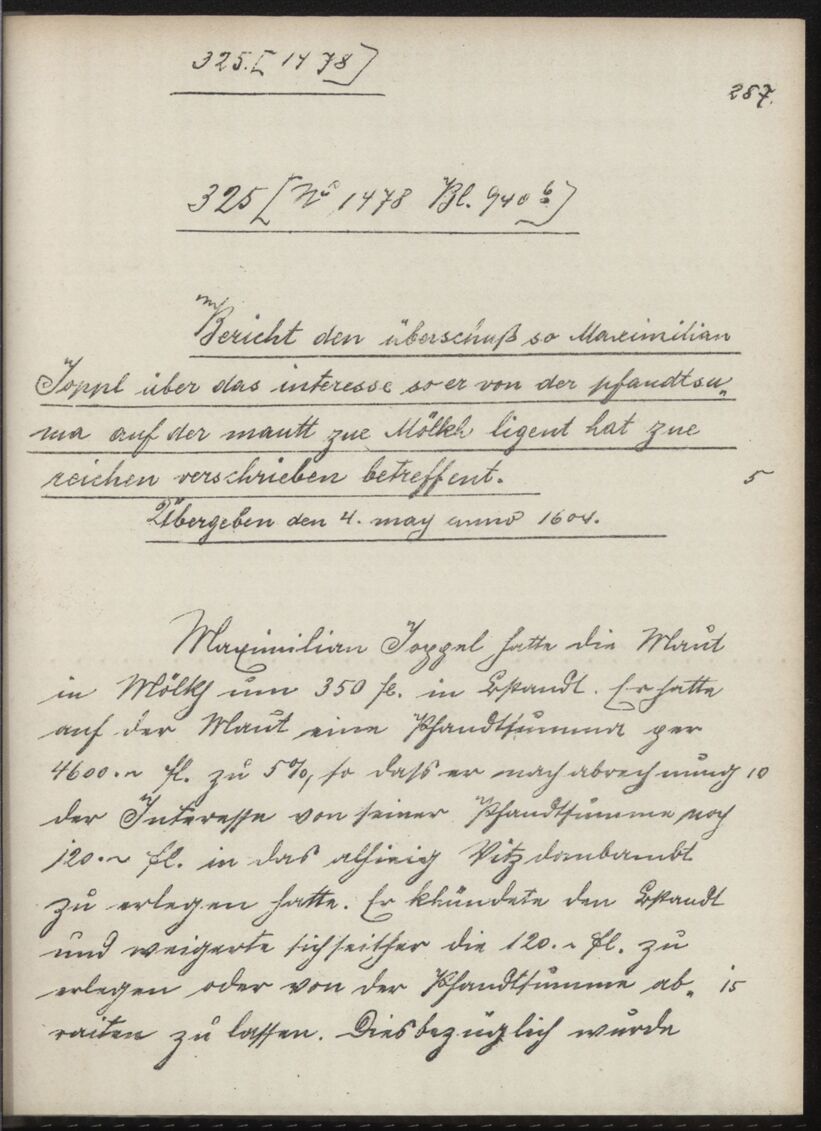 325.[1478]
287.
325[No 1478 Bl. 940b]
Bericht den überschuß so Maximilian
Joppl über das interesse so er von der pfandtsu„
ma auf der mautt zue Mölkh ligent hat zue
reichen verschrieben betreffent. 5
Übergeben den 4. may anno 1604.
Maximilian Joppel hatte die Maut
in Mölkh um 350 fl. in Bstandt. Er hatte
auf der Maut eine Pfandtsumma per
4600.~ fl. zu 5%, so dass er nach abrechnung 10
der Interesse von seiner Pfandtsumme noch
120.~ fl. in das alhieig Vitzdombambt
zu erlegen hatte. Er khündete den Bstandt
und weigerte sich seither die 120.~ fl. zu
erlegen oder von der Pfandtsumme ab„ 15
raiten zu lassen. Diesbezüglich wurde